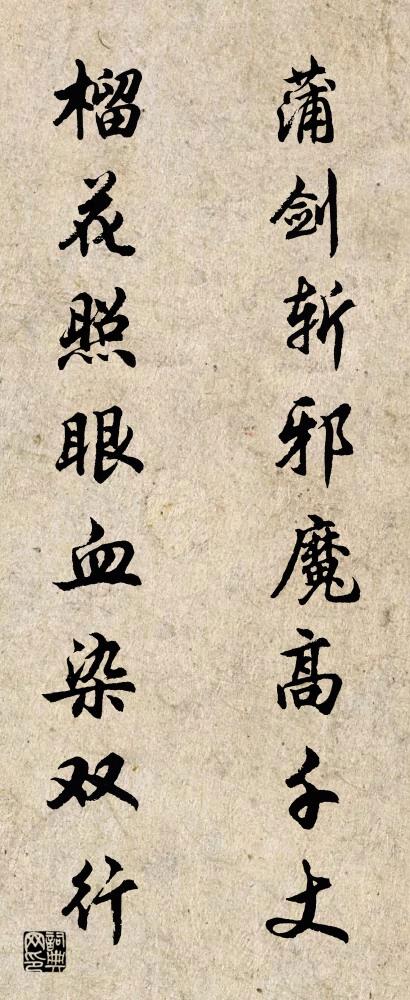 蒲剑斩邪魔高千丈
榴花照眼血染双行
词典网印